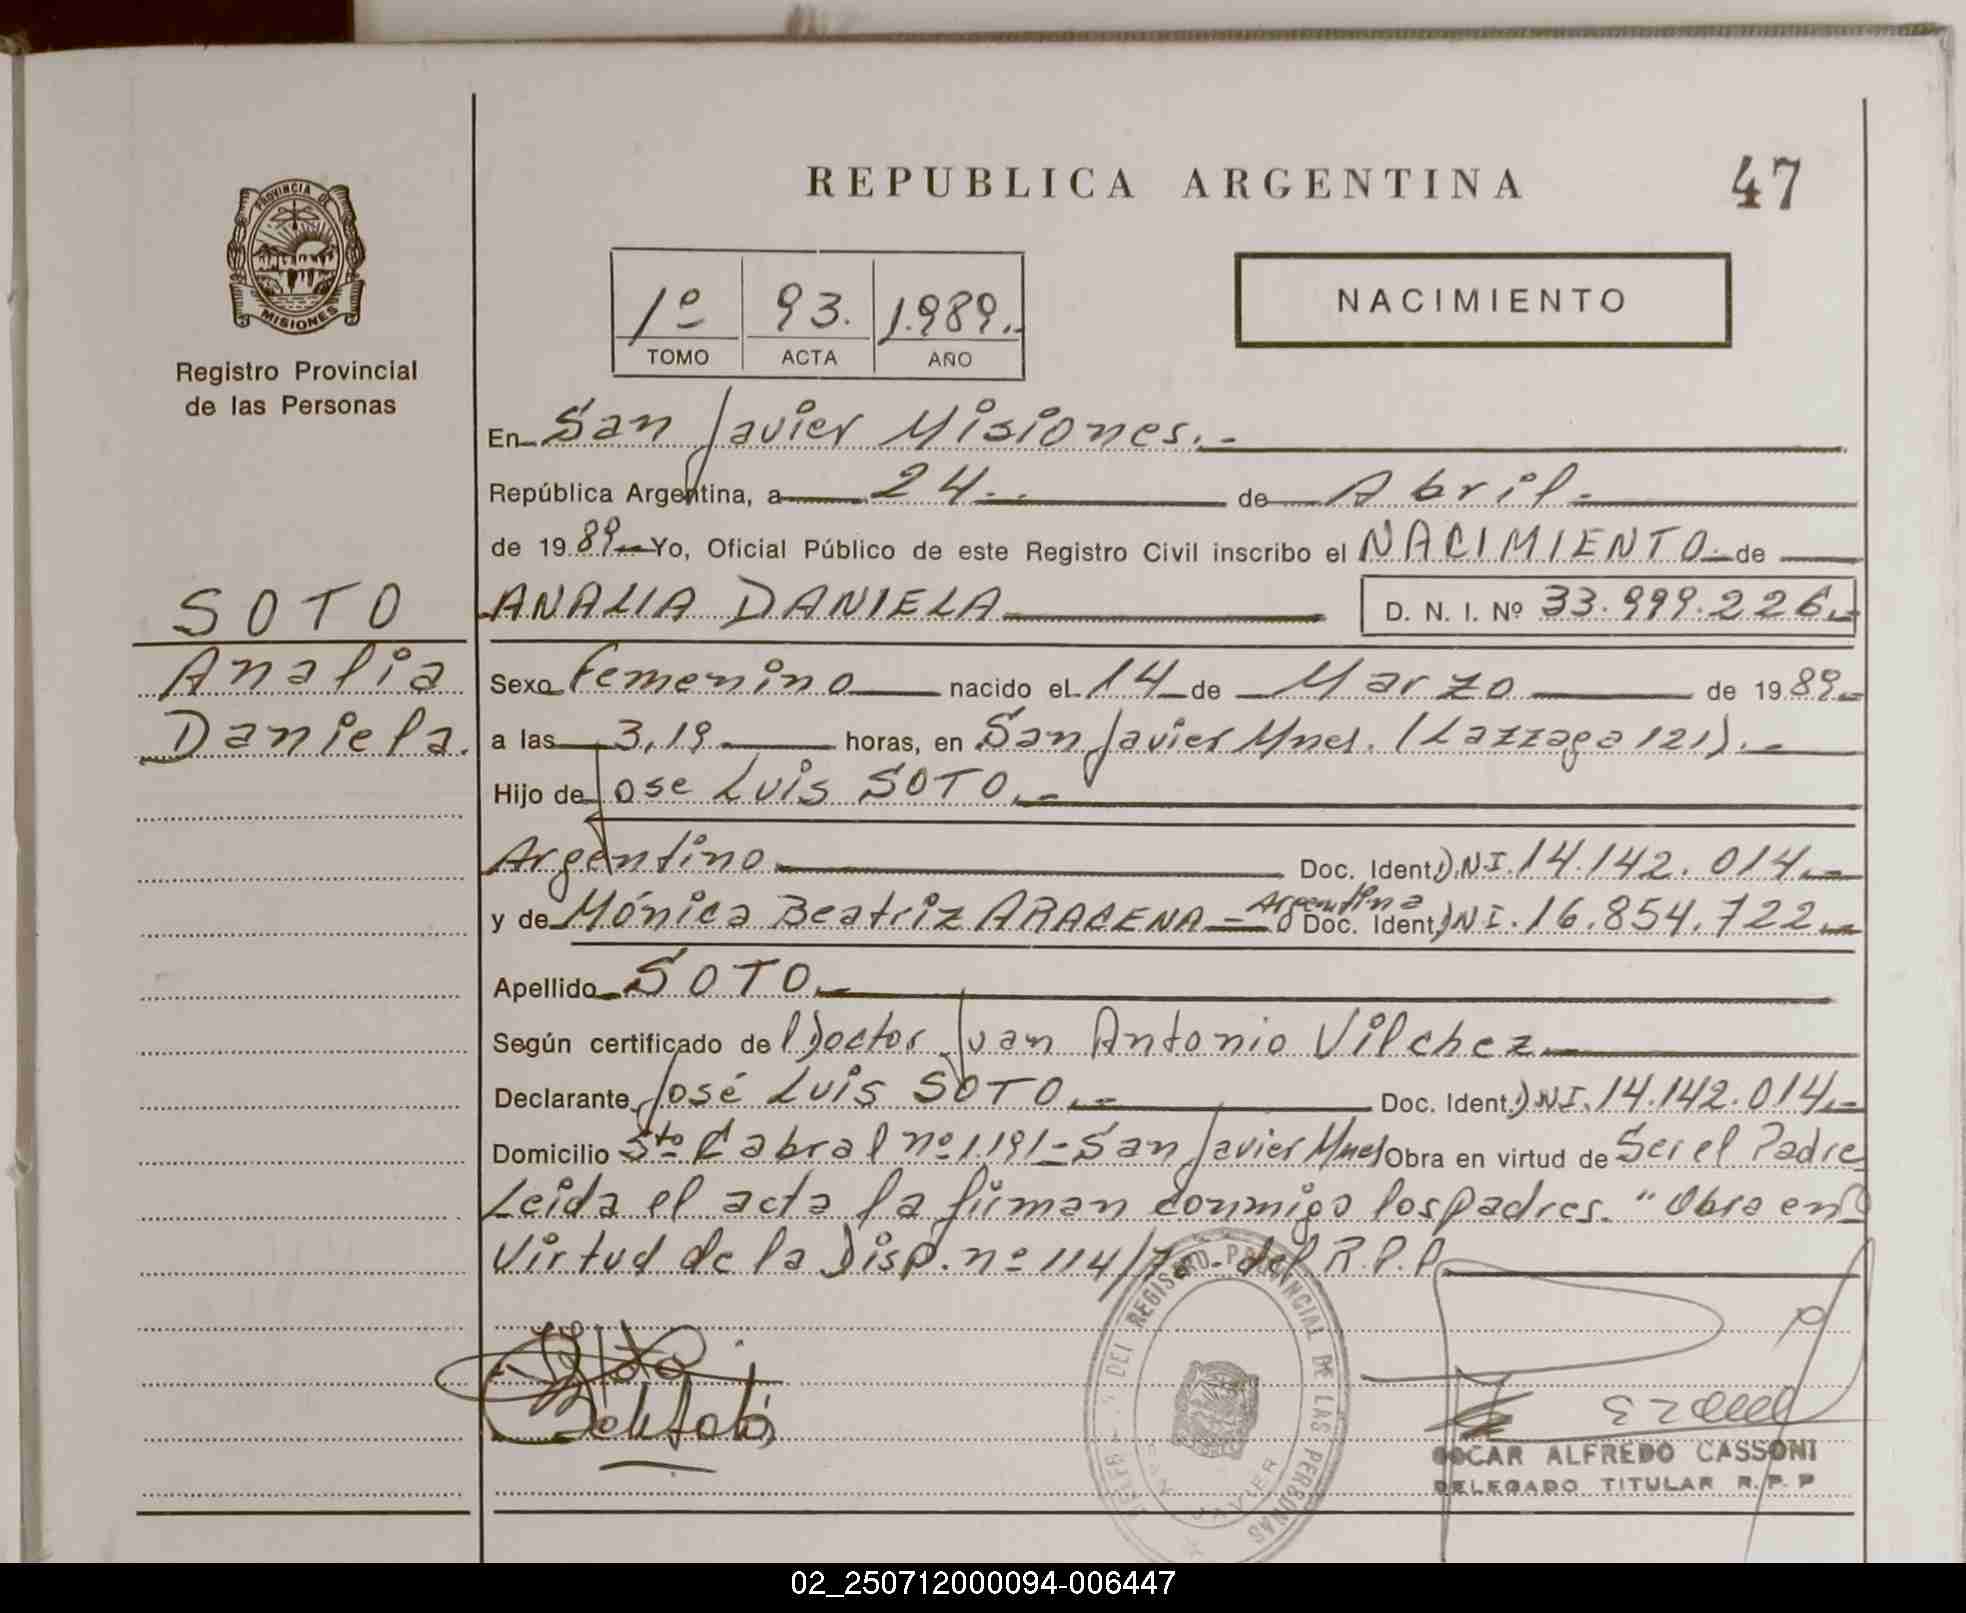 REPUBLICA ARGENTINA
47
PROVINCIA DE
MISIONES
Registro Provincial
de las Personas
1º 93. 1.989.-
TOMO ACTA AÑO
NACIMIENTO
En San Javier Misiones.-
República Argentina, a 24.- de Abril.-
de 1989 Yo, Oficial Público de este Registro Civil inscribo el NACIMIENTO.- de
SOTO
ANALIA DANIELA D. N. I. Nº 33.999.226.-
Analia
Sexo femenino nacido el 14 de Marzo de 1989.-
Daniela.
a las 3,19 horas, en San Javier Mnes. (Lazzaga 121).-
Hijo de Jose Luis SOTO.-
Argentino Doc. Ident. DNI. 14.142.014.-
y de Mónica Beatriz ARACENA = Argentina Doc. Ident. DNI. 16.854.722.-
Apellido SOTO.-
Según certificado de Doctor Juan Antonio Vilchez.-
Declarante José Luis SOTO.- Doc. Ident. DNI. 14.142.014.-
Domicilio Sto Cabral nº 1.191-San Javier Mnes Obra en virtud de Ser el Padre
Leida el acta la firman conmigo los padres. "Obra en
Virtud de la Disp. nº 114/7 - del R.P.P.
DEL REGISTRO PROVINCIAL DE LAS PERSONAS
SAN JAVIER
OSCAR ALFREDO CASSONI
DELEGADO TITULAR R.P.P
02_250712000094-006447